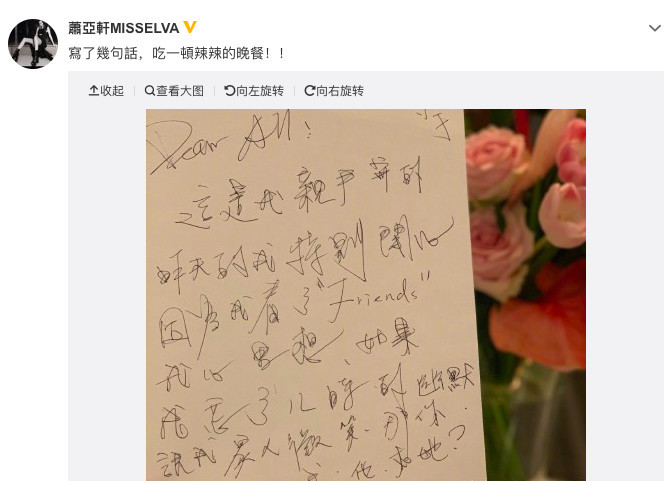 蕭亞軒MISSELVA
寫了幾句話，吃一頓辣辣的晚餐！！
收起
查看大图
向左旋转
向右旋转
Dear All!
這是我親手寫的
昨天的我特別開心
因為我看了"Friends"
我心思想、如果
我忘了儿時的幽默
說我眾人微笑.那你.